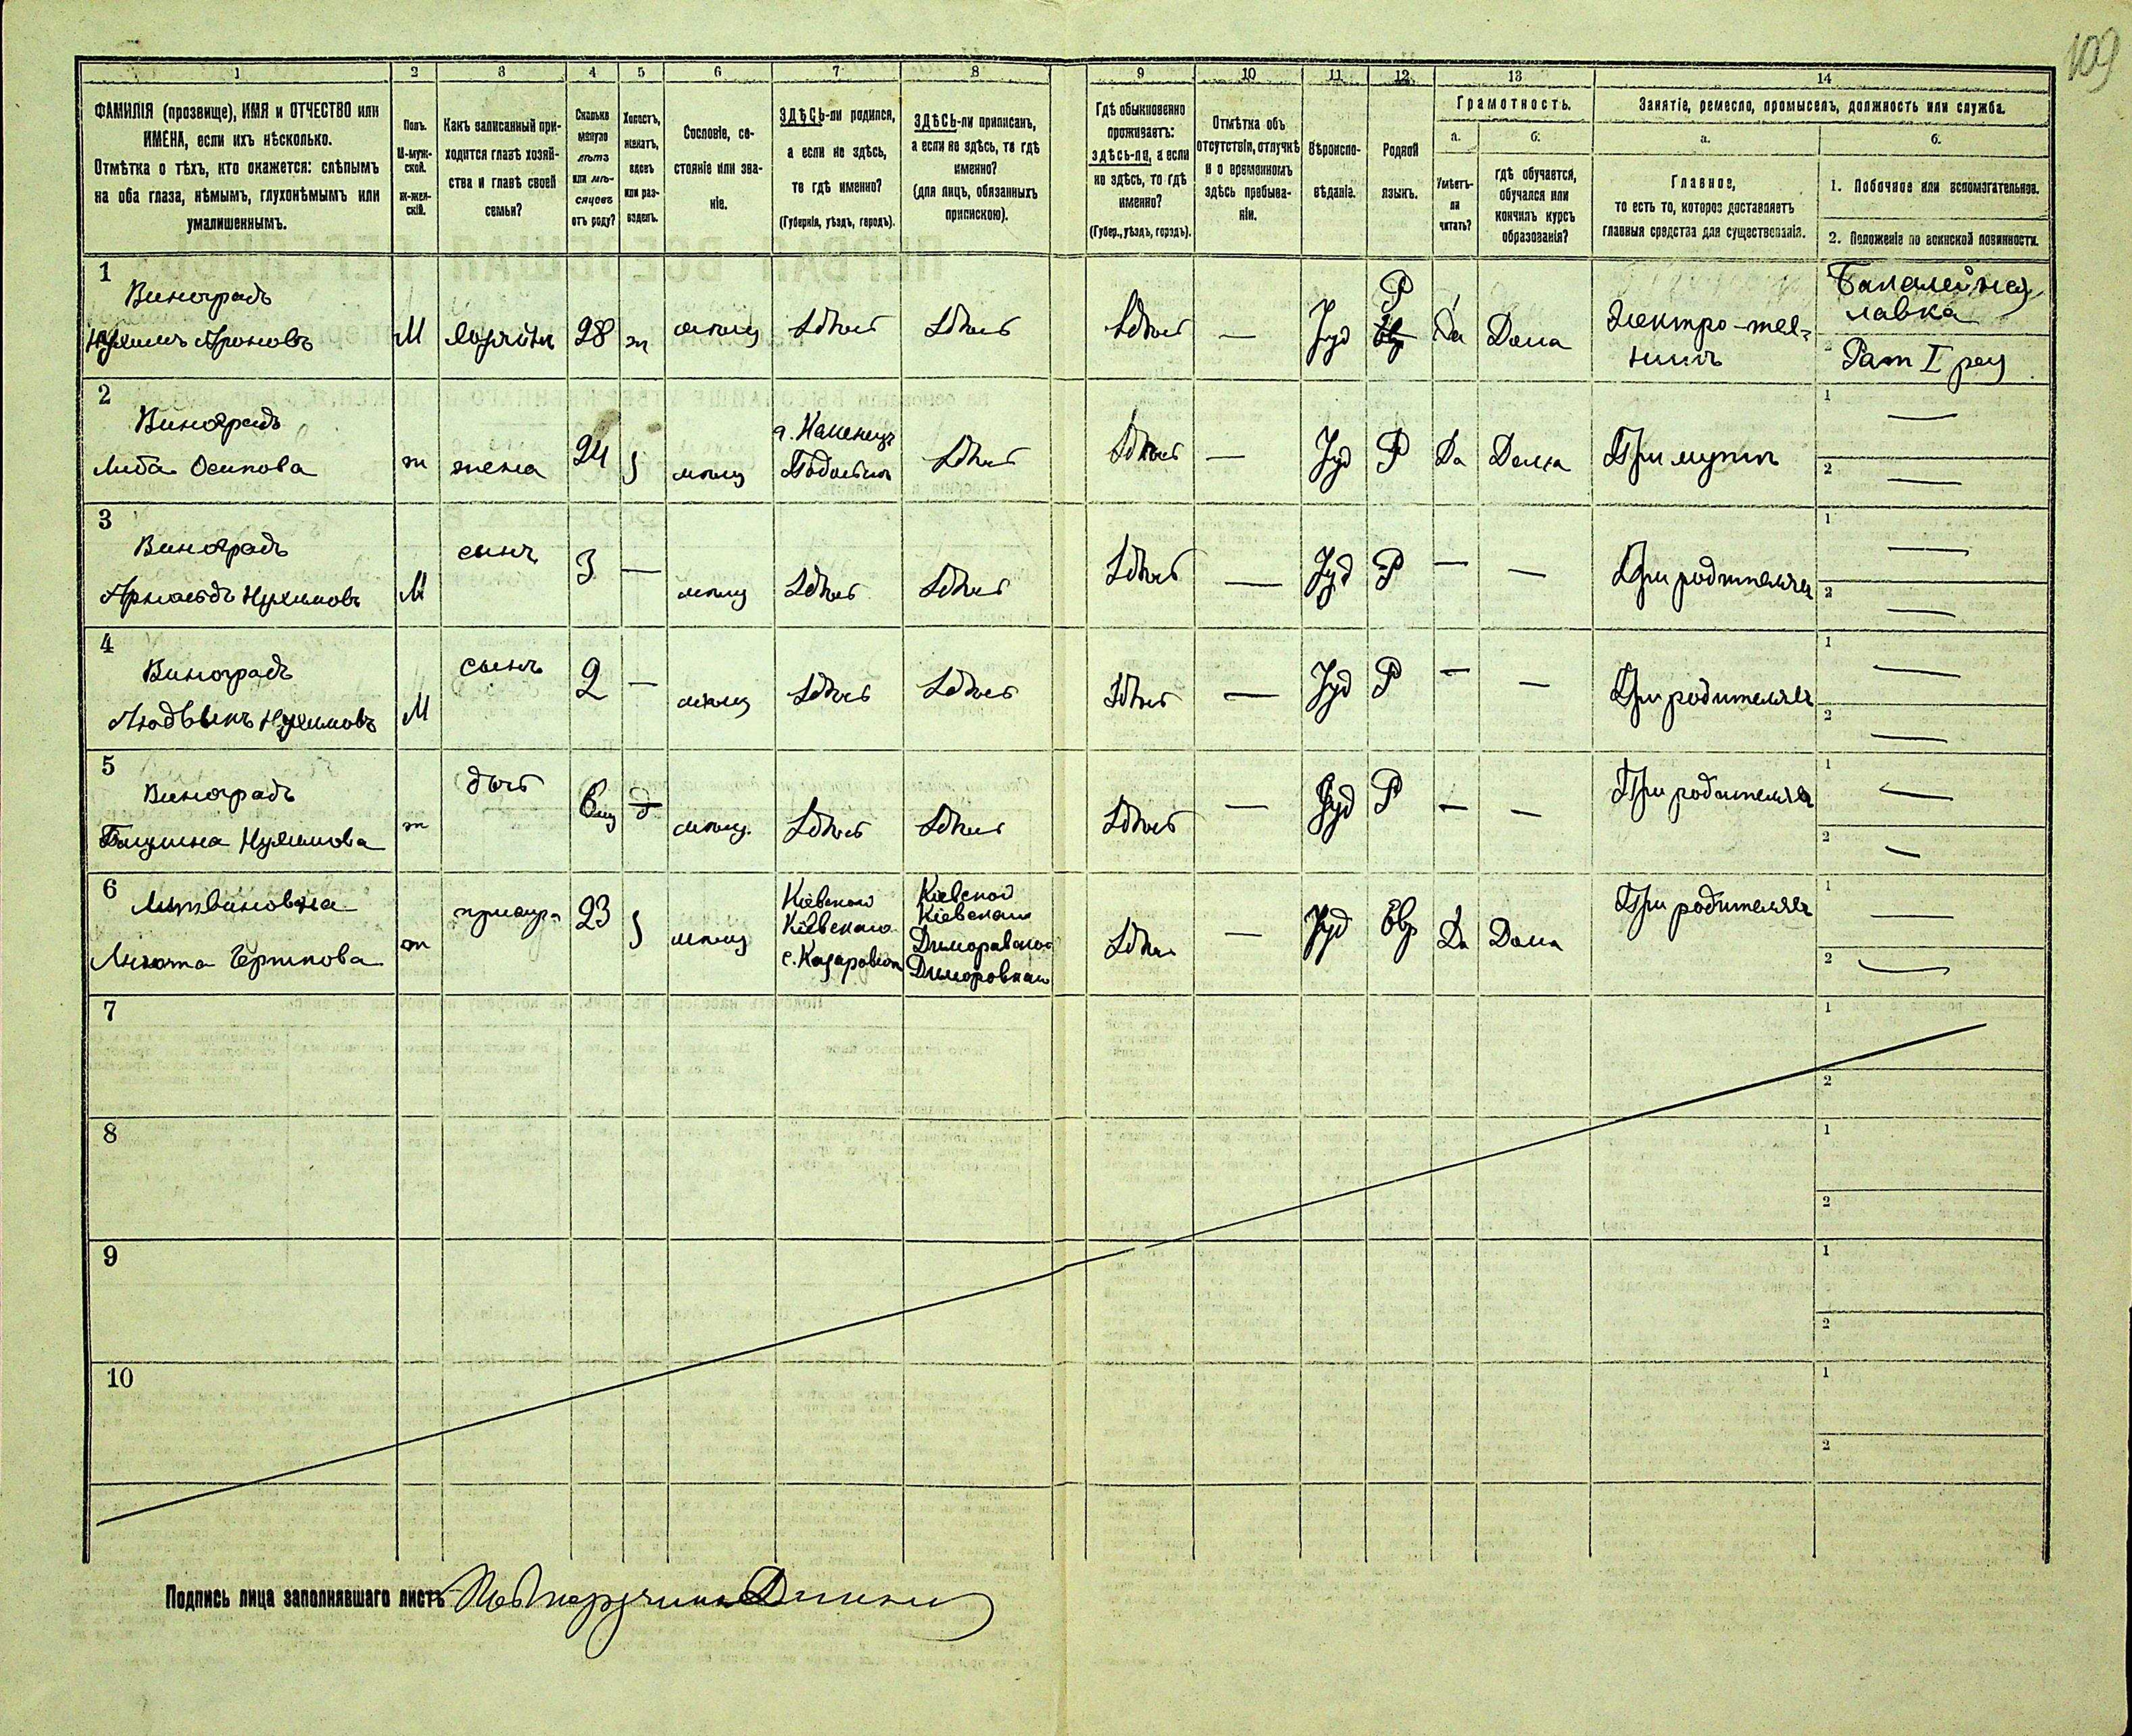 109
1 2 3 4 5 6 7 8 9 10 11 12 13 14
ФАМИЛІЯ (прозвище), ИМЯ и ОТЧЕСТВО или
ИМЕНА, если ихъ нѣсколько.
Отмѣтка о тѣхъ, кто окажется: слѣпымъ
на оба глаза, нѣмымъ, глухонѣмымъ или
умалишеннымъ.
Полъ.
М-муж-
ской.
ж-жен-
скій.
Какъ записанный при-
ходится главѣ хозяй-
ства и главѣ своей
семьи?
Сколько
минуло
лѣтъ
или мѣ-
сяцевъ
отъ роду?
Холостъ,
женатъ,
вдовъ
или раз-
веденъ.
Сословіе, со-
стояніе или зва-
ніе.
ЗДѢСЬ-ли родился,
а если не здѣсь,
то гдѣ именно?
(Губернія, уѣздъ, городъ).
ЗДѢСЬ-ли приписанъ,
а если не здѣсь, то гдѣ
именно?
(для лицъ, обязанныхъ
припискою).
Гдѣ обыкновенно
проживаетъ:
здѣсь-ли, а если
не здѣсь, то гдѣ
именно?
(Губер., уѣздъ, городъ).
Отмѣтка объ
отсутствіи, отлучкѣ
и о временномъ
здѣсь пребыва-
ніи.
Вѣроиспо-
вѣданіе.
Родной
языкъ.
Грамотность.
а.
Умѣетъ-
ли
читать?
б.
гдѣ обучается,
обучался или
кончилъ курсъ
образованія?
Занятіе, ремесло, промыселъ, должность или служба.
а.
Главное,
то есть то, которое доставляетъ
главныя средства для существованія.
б.
1. Побочное или вспомогательное.
2. Положеніе по воинской повинности.
1
Виноградъ
Нухимъ Ароновъ
М
хозяинъ
28
ж
мѣщ
Здѣсь
Здѣсь
Здѣсь
—
Іуд
Р
Да
Дома
Электро-тех-
никъ
Бакалейная
лавка
2
Рат I раз
2
Виноградъ
Либа Осипова
ж
жена
24
з
мѣщ
г. Каменецъ
Подольскъ
Здѣсь
Здѣсь
—
Іуд
Р
Да
Дома
При мужѣ
1 —
2 —
3
Виноградъ
Арнольдъ Нухимовъ
М
сынъ
3
—
мѣщ
Здѣсь
Здѣсь
Здѣсь
—
Іуд
Р
—
—
При родителяхъ
1 —
2 —
4
Виноградъ
Людвикъ Нухимовъ
М
сынъ
2
—
мѣщ
Здѣсь
Здѣсь
Здѣсь
—
Іуд
Р
—
—
При родителяхъ
1 —
2 —
5
Виноградъ
Нухимова
ж
дочь
мѣщ.
Здѣсь
Здѣсь
Здѣсь
—
Іуд
Р
—
—
При родителяхъ
1 —
2 —
6
Литвиновна
ж
23
з
мѣщ
Кіевской
Кіевскаго
Кіевской
Кіевскаго
Здѣсь
—
Іуд
Евр
Да
Дома
При родителяхъ
1 —
2 —
7
1
2
8
1
2
9
1
2
10
1
2
Подпись лица заполнявшаго листъ